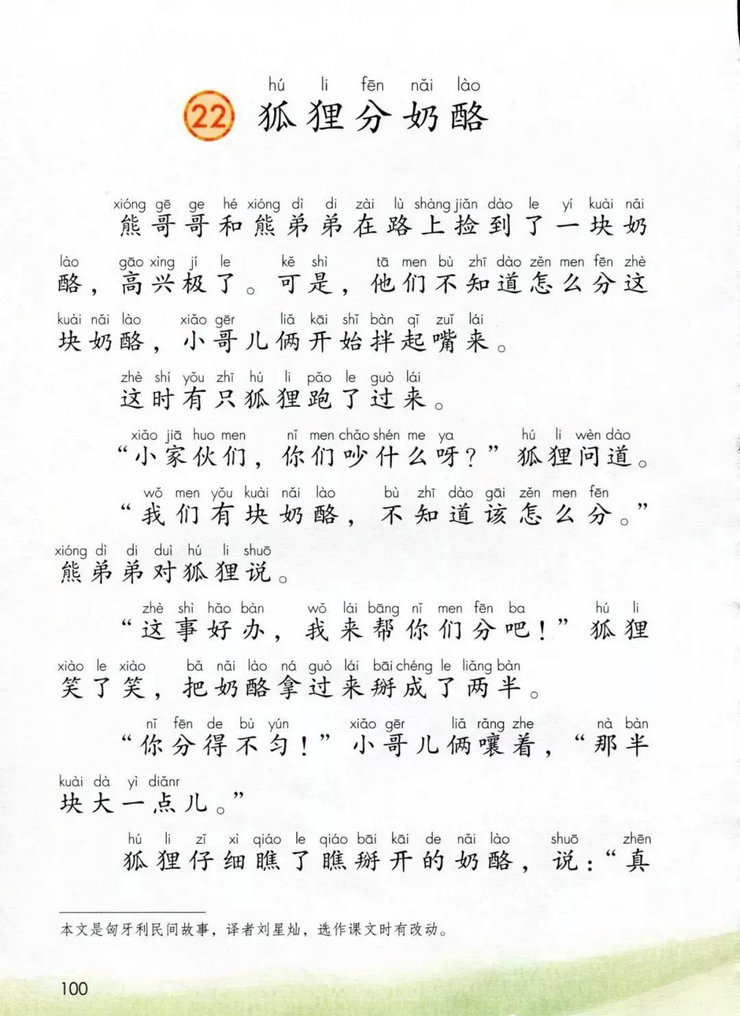 hú li fēn nǎi lào
22 狐狸分奶酪
xióng gē ge hé xióng dì di zài lù shàng jiǎn dào le yí kuài nǎi
熊哥哥和熊弟弟在路上捡到了一块奶
lào gāo xìng jí le kě shì tā men bù zhī dào zěn men fēn zhè
酪，高兴极了。可是，他们不知道怎么分这
kuài nǎi lào xiǎo gēr liǎ kāi shǐ bàn qǐ zuǐ lái
块奶酪，小哥儿俩开始拌起嘴来。
zhè shí yǒu zhī hú li pǎo le guò lái
这时有只狐狸跑了过来。
xiǎo jiā huo men nǐ men chǎo shén me ya hú li wèn dào
“小家伙们，你们吵什么呀？”狐狸问道。
wǒ men yǒu kuài nǎi lào bù zhī dào gāi zěn men fēn
“我们有块奶酪，不知道该怎么分。”
xióng dì di duì hú li shuō
熊弟弟对狐狸说。
zhè shì hǎo bàn wǒ lái bāng nǐ men fēn ba hú li
“这事好办，我来帮你们分吧！”狐狸
xiào le xiào bǎ nǎi lào ná guò lái bāi chéng le liǎng bàn
笑了笑，把奶酪拿过来掰成了两半。
nǐ fēn de bù yún xiǎo gēr liǎ rǎng zhe nà bàn
“你分得不匀！”小哥儿俩嚷着，“那半
kuài dà yì diǎnr
块大一点儿。”
hú li zǐ xì qiáo le qiáo bāi kāi de nǎi lào shuō zhēn
狐狸仔细瞧了瞧掰开的奶酪，说：“真
本文是匈牙利民间故事，译者刘星灿，选作课文时有改动。
100